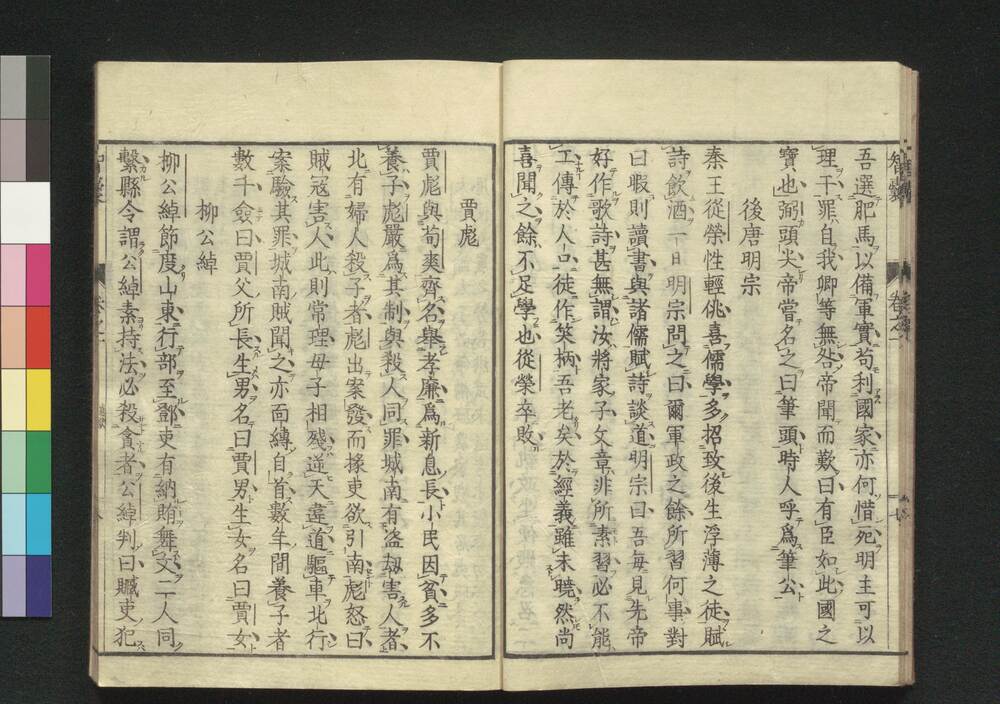 吾選肥馬以備軍實苟利國家亦何惜死明主可以
理干罪自我卿等無咎帝聞而歎曰有臣如此國之
寶也弼頭尖帝嘗名之曰筆頭時人呼爲筆公
後唐明宗
秦王從榮性輕佻喜儒學多招致後生浮薄之徒賦
詩飲酒一日明宗問之曰爾軍政之餘所習何事對
曰暇則讀書與諸儒賦詩談道明宗曰吾毎見先帝
好作歌詩甚無謂汝將家子文章非所素習必不能
工傳於人口徒作笑柄吾老矣於經義雖未曉然尚
喜聞之餘不足學也從榮卒敗
賈彪
賈彪與荀爽齊名舉孝廉爲新息長小民因貧多不
養子彪嚴爲其制與殺人同罪城南有盜劫害人者
北有婦人殺子者彪出案發而掾吏欲引南彪怒曰
賊寇害人此則常理母子相殘逆天違道驅車北行
案驗其罪城南賊聞之亦面縛自首數年間養子者
數千僉曰賈父所長生男名曰賈男生女名曰賈女
柳公綽
柳公綽節度山東行部至鄧吏有納賄舞文二人同
繫縣令謂公綽素持法必殺貪者公綽判曰贓吏犯